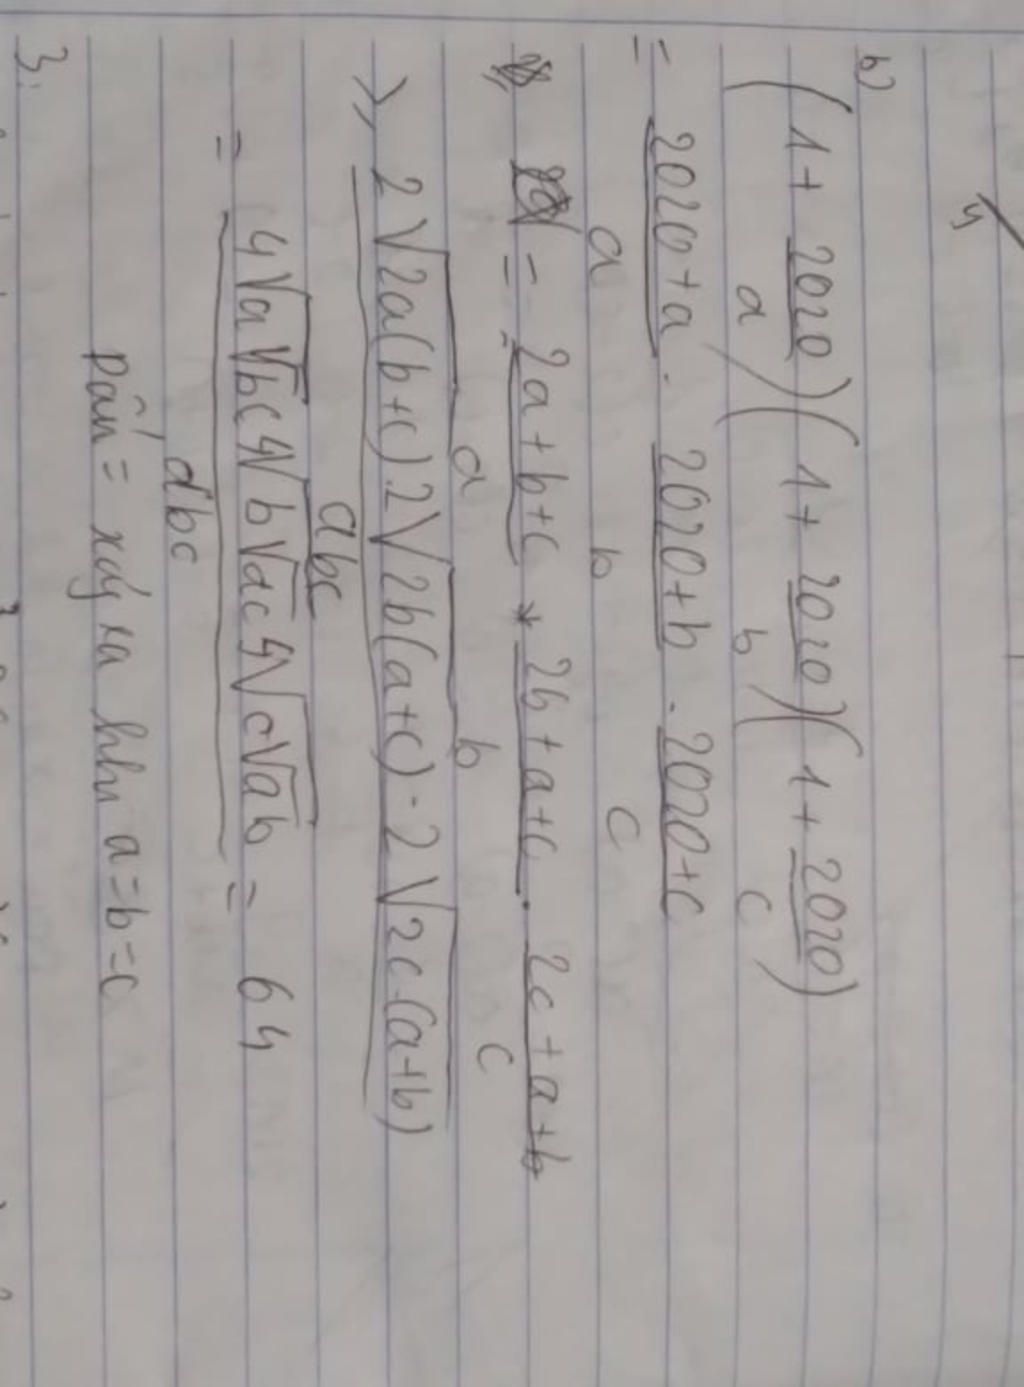 b)
(1 + 2020/a)(1 + 2020/b)(1 + 2020/c)
= 2020+a/a . 2020+b/b . 2020+c/c
= 2a+b+c/a * 2b+a+c/b . 2c+a+b/c
≥ 2√2a(b+c) . 2√2b(a+c) . 2√2c.(a+b)/abc
= 4√a√bc 4√b√ac 4√c√ab/abc = 64
Dấu = xảy ra khi a=b=c
3.